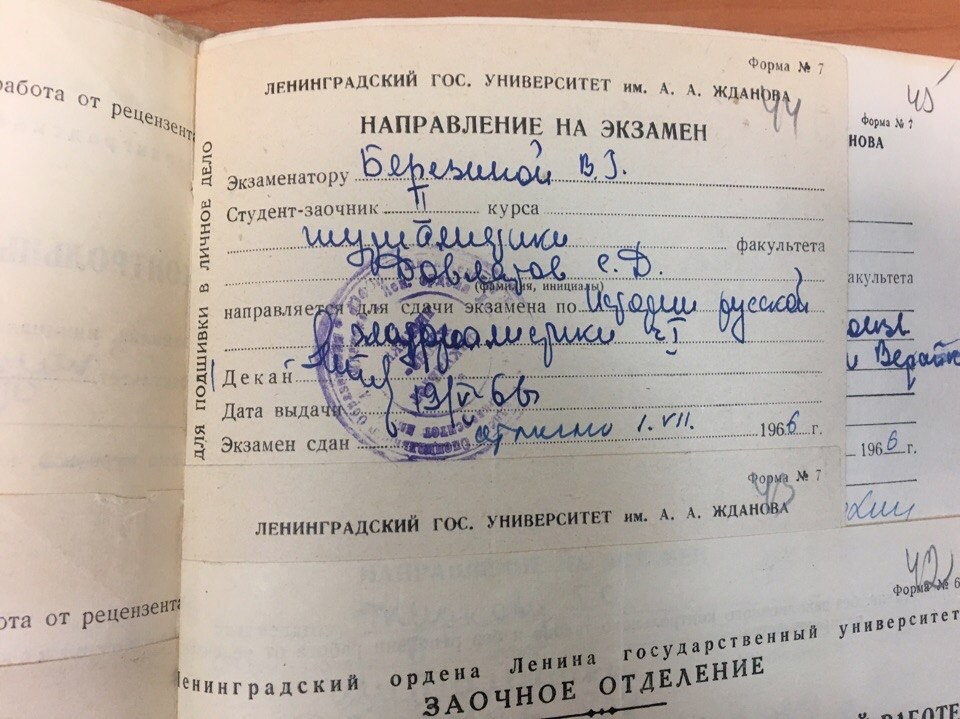 работа от рецензента
Форма № 7
44
ЛЕНИНГРАДСКИЙ ГОС. УНИВЕРСИТЕТ им. А. А. ЖДАНОВА
НАПРАВЛЕНИЕ НА ЭКЗАМЕН
Экзаменатору Березиной В.Г.
Студент-заочник II курса
журналистики факультета
Довлатов С.Д.
(фамилия, инициалы)
направляется для сдачи экзамена по Истории русской
журналистики ч I
Декан
Дата выдачи 19/V-66
Экзамен сдан отлично 1.VII. 1966 г.
ДЛЯ ПОДШИВКИ В ЛИЧНОЕ ДЕЛО
45
Форма № 7
НОВА
акультета
1966 г.
Форма № 7
43
ЛЕНИНГРАДСКИЙ ГОС. УНИВЕРСИТЕТ им. А. А. ЖДАНОВА
42
Форма № 6
ота от рецензента
Ленинградский ордена Ленина государственный университет
ЗАОЧНОЕ ОТДЕЛЕНИЕ
РАБОТЕ